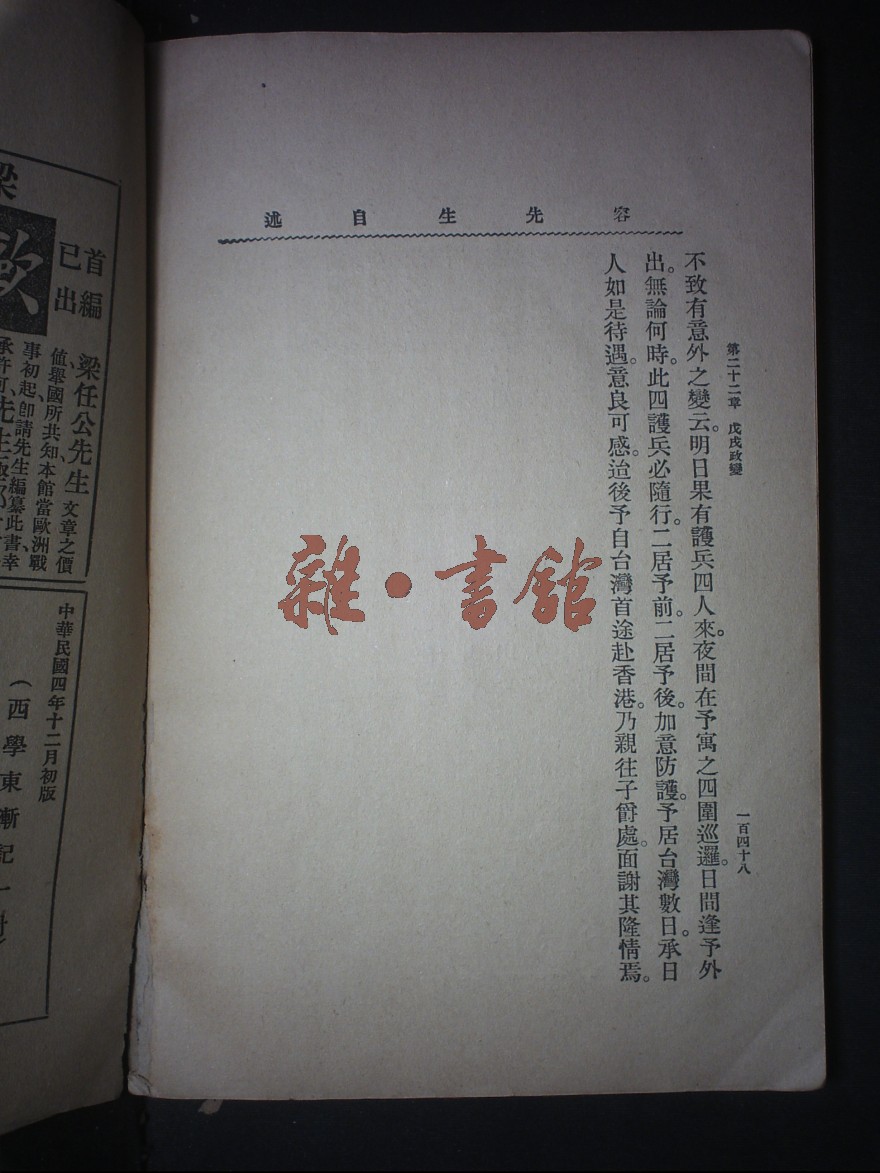 容先生自述
第二十二章　戊戌政變
一百四十八
不致有意外之變云。明日果有護兵四人來。夜間在予寓之四圍巡邏。日間逢予外
出。無論何時。此四護兵必隨行。二居予前。二居予後。加意防護。予居台灣數日。承日
人如是待遇。意良可感。迨後予自台灣首途赴香港。乃親往子爵處。面謝其隆情焉。
雜·書館
梁
歐
首編
已出
梁任公先生文章之價
値、舉國所共知、本館當歐洲戰
事初起、卽請先生編纂此書、幸
承許可、先生
中華民國四年十二月初版
（西學東漸記一